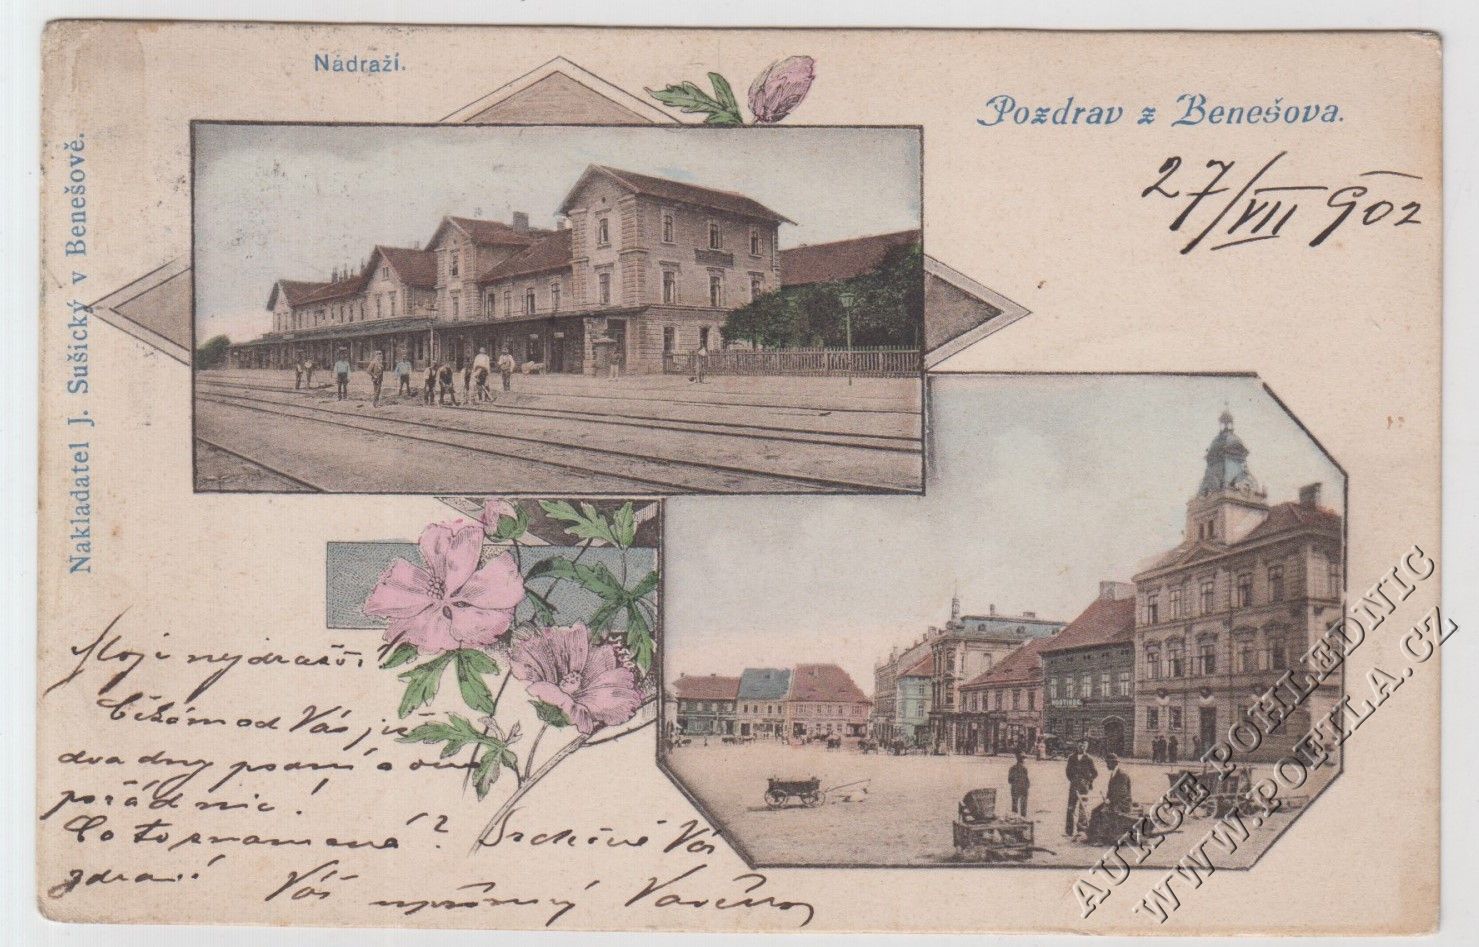 Nádraží.
Pozdrav z Benešova.
27/VII 902
Nakladatel J. Sušický v Benešově.
Moji nejdražší!
Čekám od Vás již
dva dny psaní a
pořád nic!
Co to znamená? Srdečně Vás
zdraví
Váš upřímný
AUKCE POHLEDNIC
WWW.POFILA.CZ